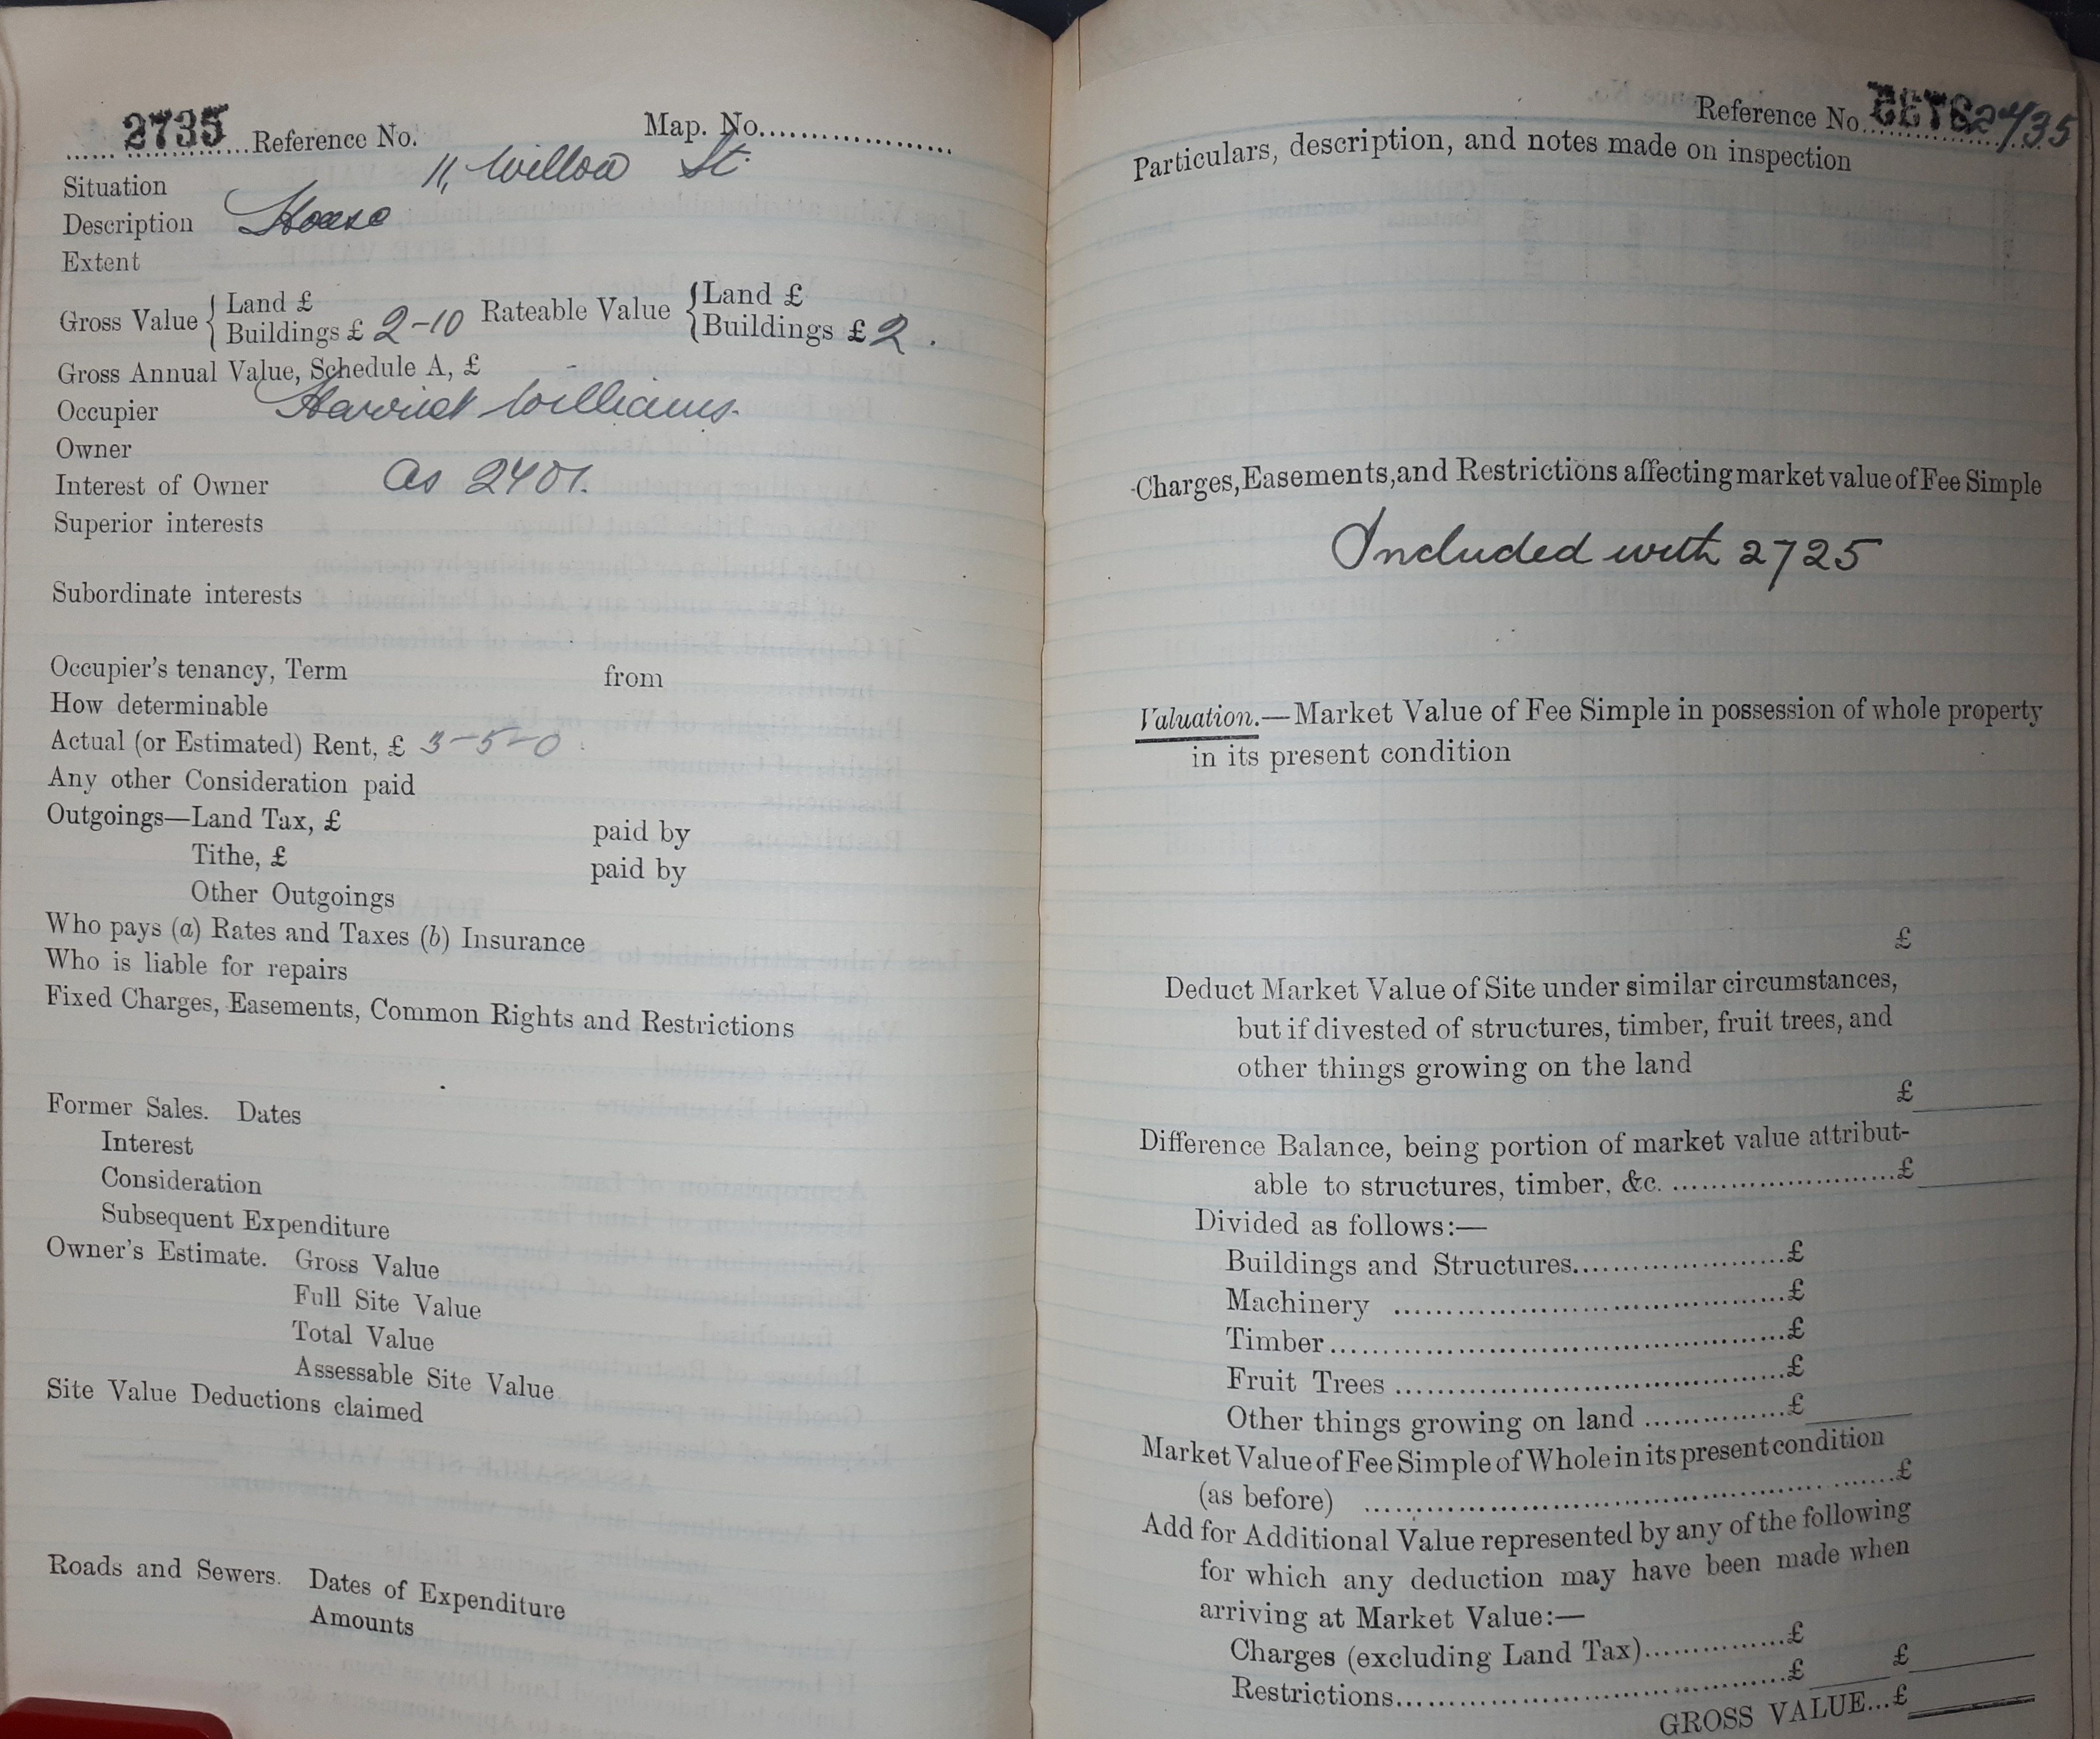 2735 Reference No. Map. No.
Situation 11, Willow St.
Description House
Extent
Gross Value { Land £
Buildings £ 2-10 Rateable Value { Land £
Buildings £ 2.
Gross Annual Value, Schedule A, £
Occupier Harriet Williams.
Owner
Interest of Owner As 2401.
Superior interests
Subordinate interests
Occupier's tenancy, Term from
How determinable
Actual (or Estimated) Rent, £ 3-5-0
Any other Consideration paid
Outgoings—Land Tax, £ paid by
Tithe, £ paid by
Other Outgoings
Who pays (a) Rates and Taxes (b) Insurance
Who is liable for repairs
Fixed Charges, Easements, Common Rights and Restrictions
Former Sales. Dates
Interest
Consideration
Subsequent Expenditure
Owner's Estimate. Gross Value
Full Site Value
Total Value
Assessable Site Value
Site Value Deductions claimed
Roads and Sewers. Dates of Expenditure
Amounts
Reference No.
Particulars, description, and notes made on inspection
Charges, Easements, and Restrictions affecting market value of Fee Simple
Included with 2725
Valuation.—Market Value of Fee Simple in possession of whole property
in its present condition
£
Deduct Market Value of Site under similar circumstances,
but if divested of structures, timber, fruit trees, and
other things growing on the land
£
Difference Balance, being portion of market value attribut-
able to structures, timber, &c. £
Divided as follows:—
Buildings and Structures £
Machinery £
Timber £
Fruit Trees £
Other things growing on land £
Market Value of Fee Simple of Whole in its present condition
(as before) £
Add for Additional Value represented by any of the following
for which any deduction may have been made when
arriving at Market Value:—
Charges (excluding Land Tax) £
Restrictions £ £
GROSS VALUE...£